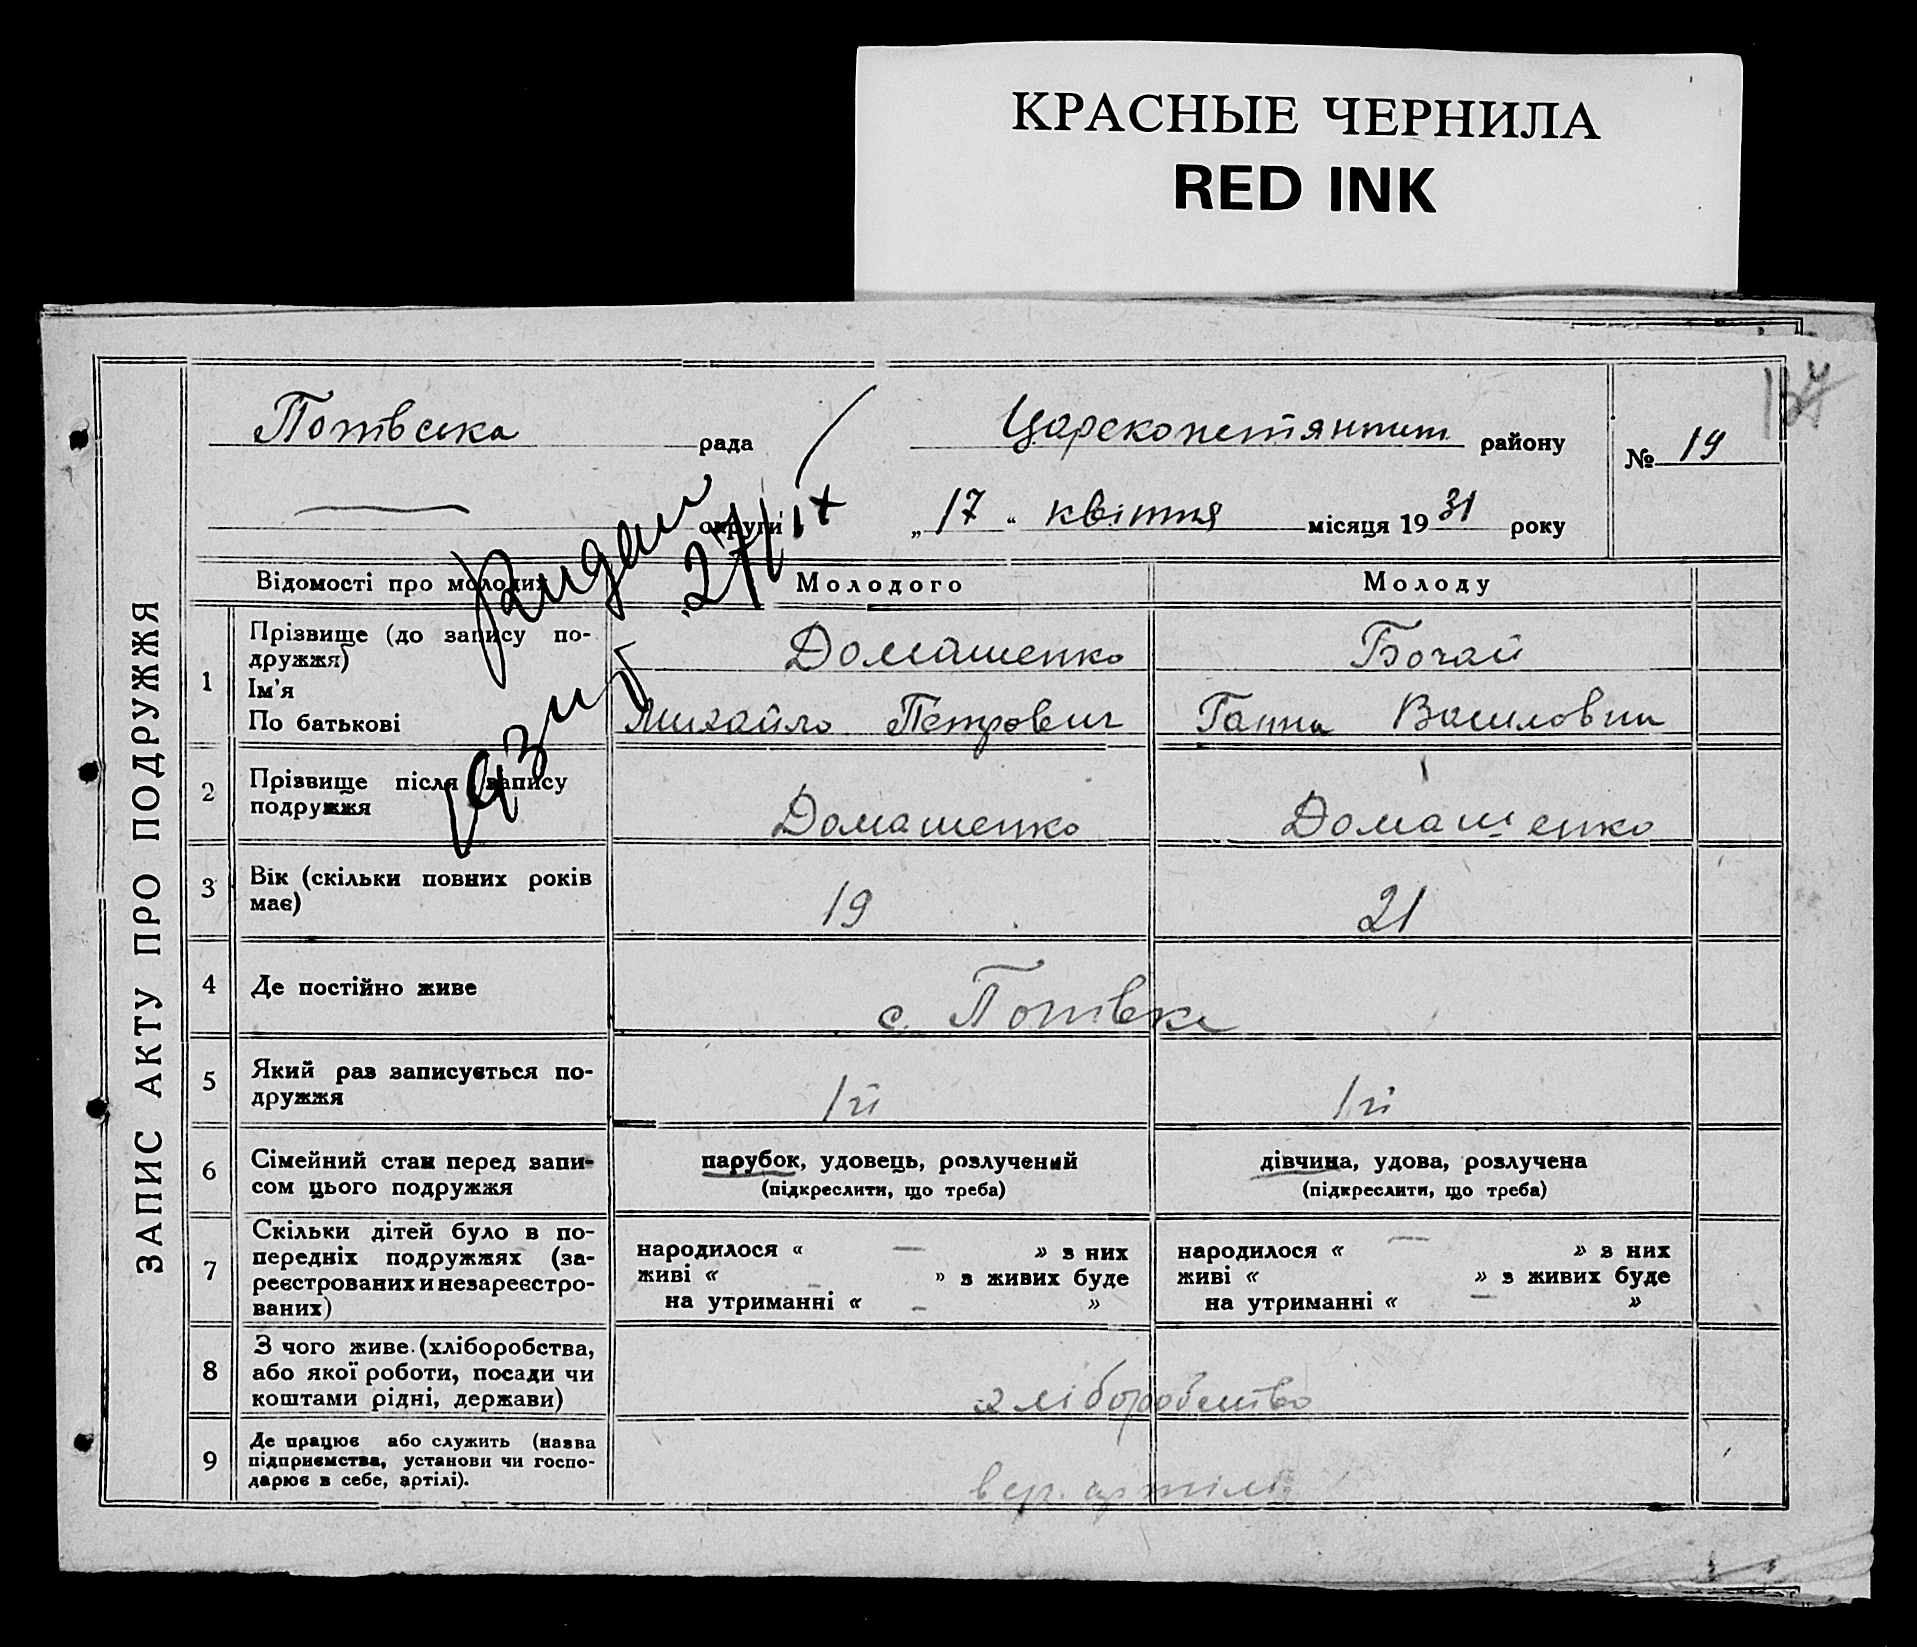 КРАСНЫЕ ЧЕРНИЛА
RED INK
124
ЗАПИС АКТУ ПРО ПОДРУЖЖЯ
Потівська рада
Царсконстянтин. району
№ 19
округи
„ 17 “ квітня місяця 1931 року
27/IX
Відомості про молодих
Молодого
Молоду
1
Прізвище (до запису по-
дружжя)
Ім'я
По батькові
Домашенко
Михайло Петрович
Бочай
Ганна Василовни
2
Прізвище після запису
подружжя
Домашенко
Домашенко
3
Вік (скільки повних років
має)
19
21
4
Де постійно живе
с. Потівка
5
Який раз записується по-
дружжя
1й
1й
6
Сімейний стан перед запи-
сом цього подружжя
парубок, удовець, розлучений
(підкреслити, що треба)
дівчина, удова, розлучена
(підкреслити, що треба)
7
Скільки дітей було в по-
передніх подружжях (за-
реєстрованих и незареєстро-
ваних)
народилося « — » з них
живі « — » з живих буде
на утриманні « — »
народилося « — » з них
живі « — » з живих буде
на утриманні « »
8
З чого живе (хліборобства,
або якої роботи, посади чи
коштами рідні, держави)
хліборобство
9
Де працює або служить (назва
підприємства, установи чи госпо-
дарює в себе, артілі).
артілі